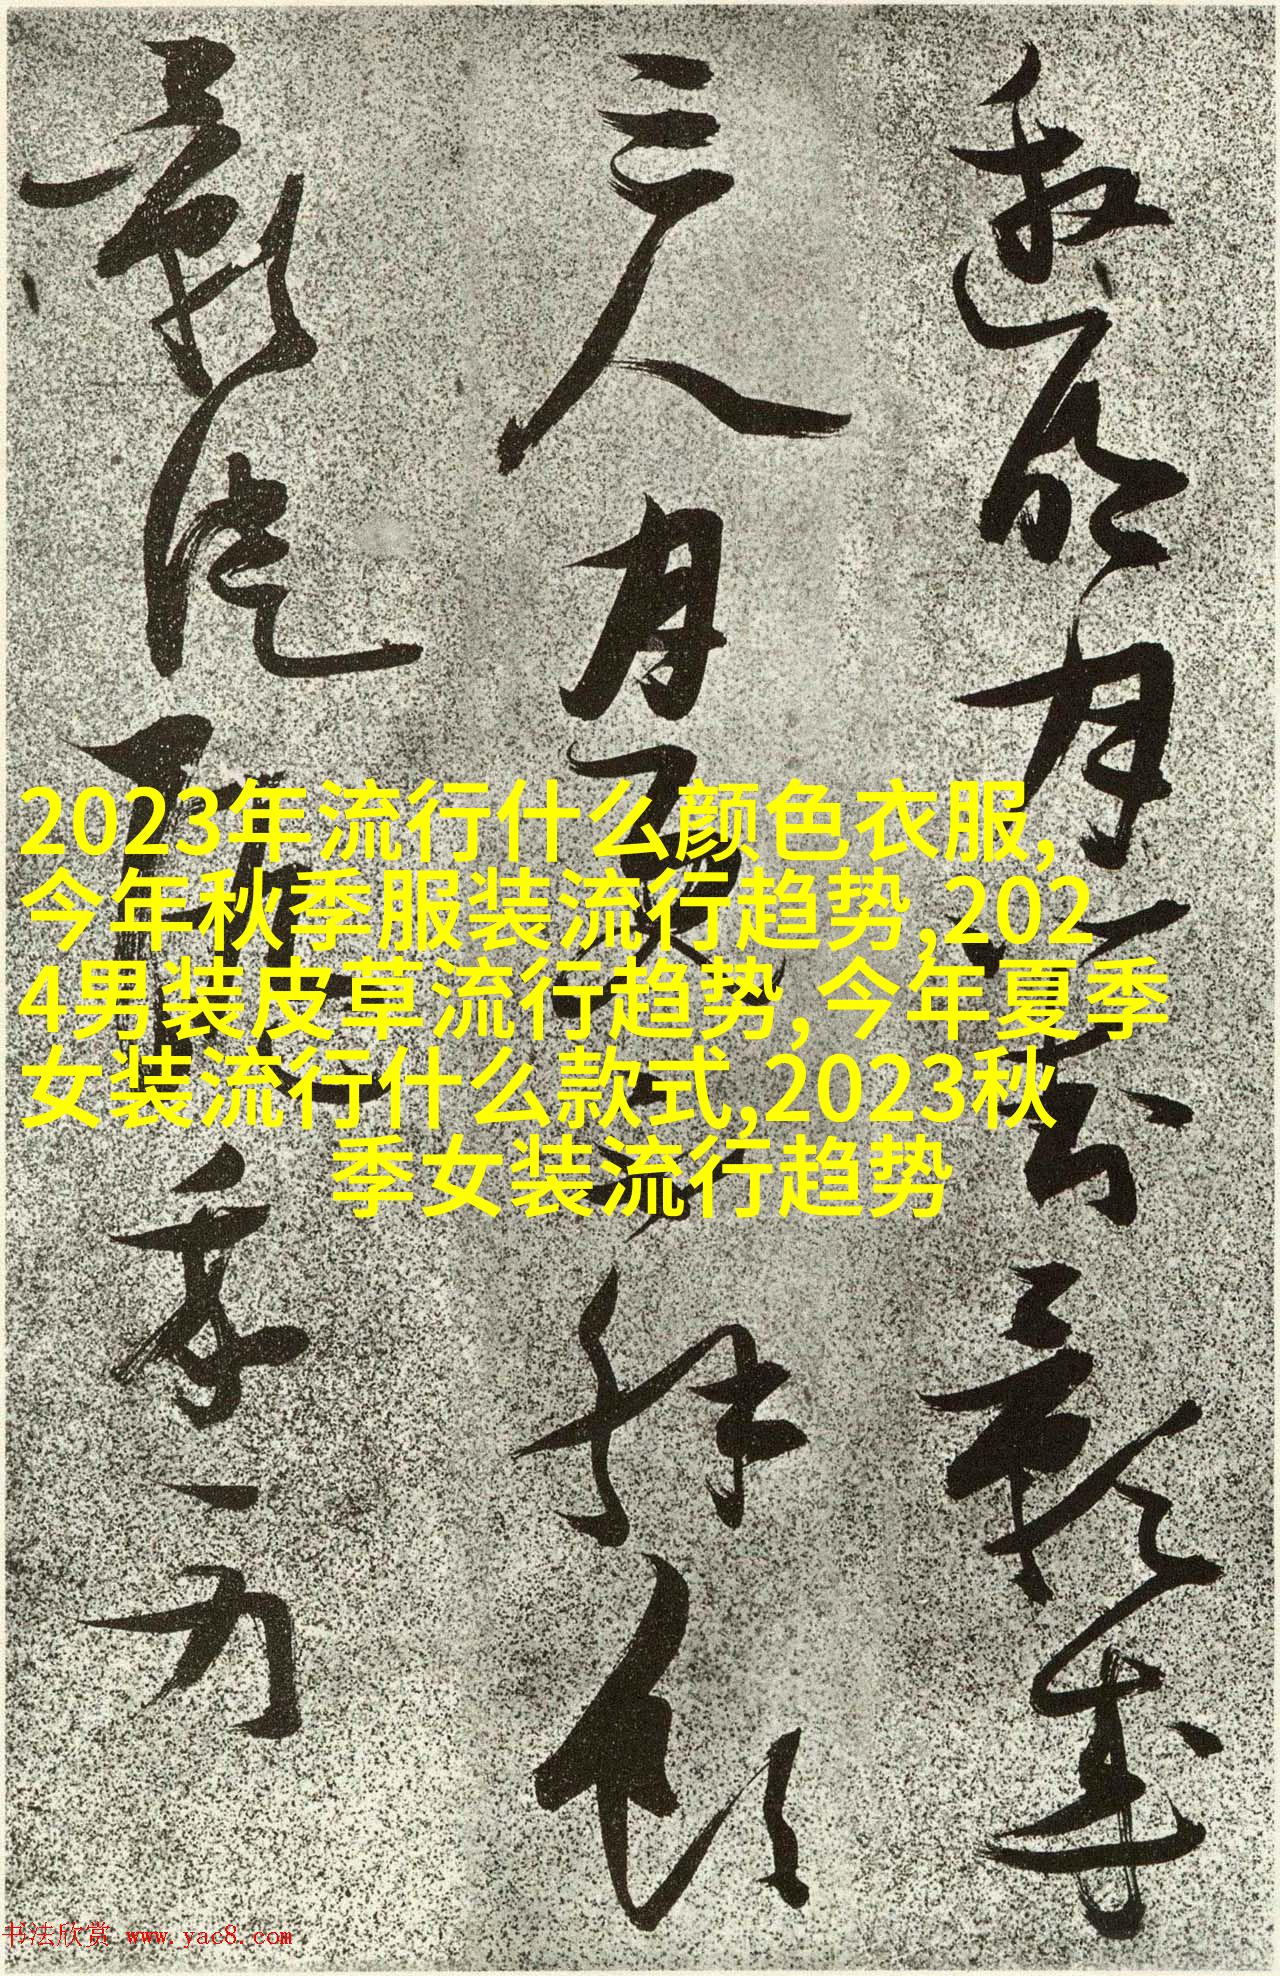 邀明月對影成
三人月既不解飲
影徒隨
2023年流行什么颜色衣服,
今年秋季服装流行趋势,202
4男装皮草流行趋势,今年夏季
女装流行什么款式,2023秋
季女装流行趋势
书法欣赏 www.yac8.com